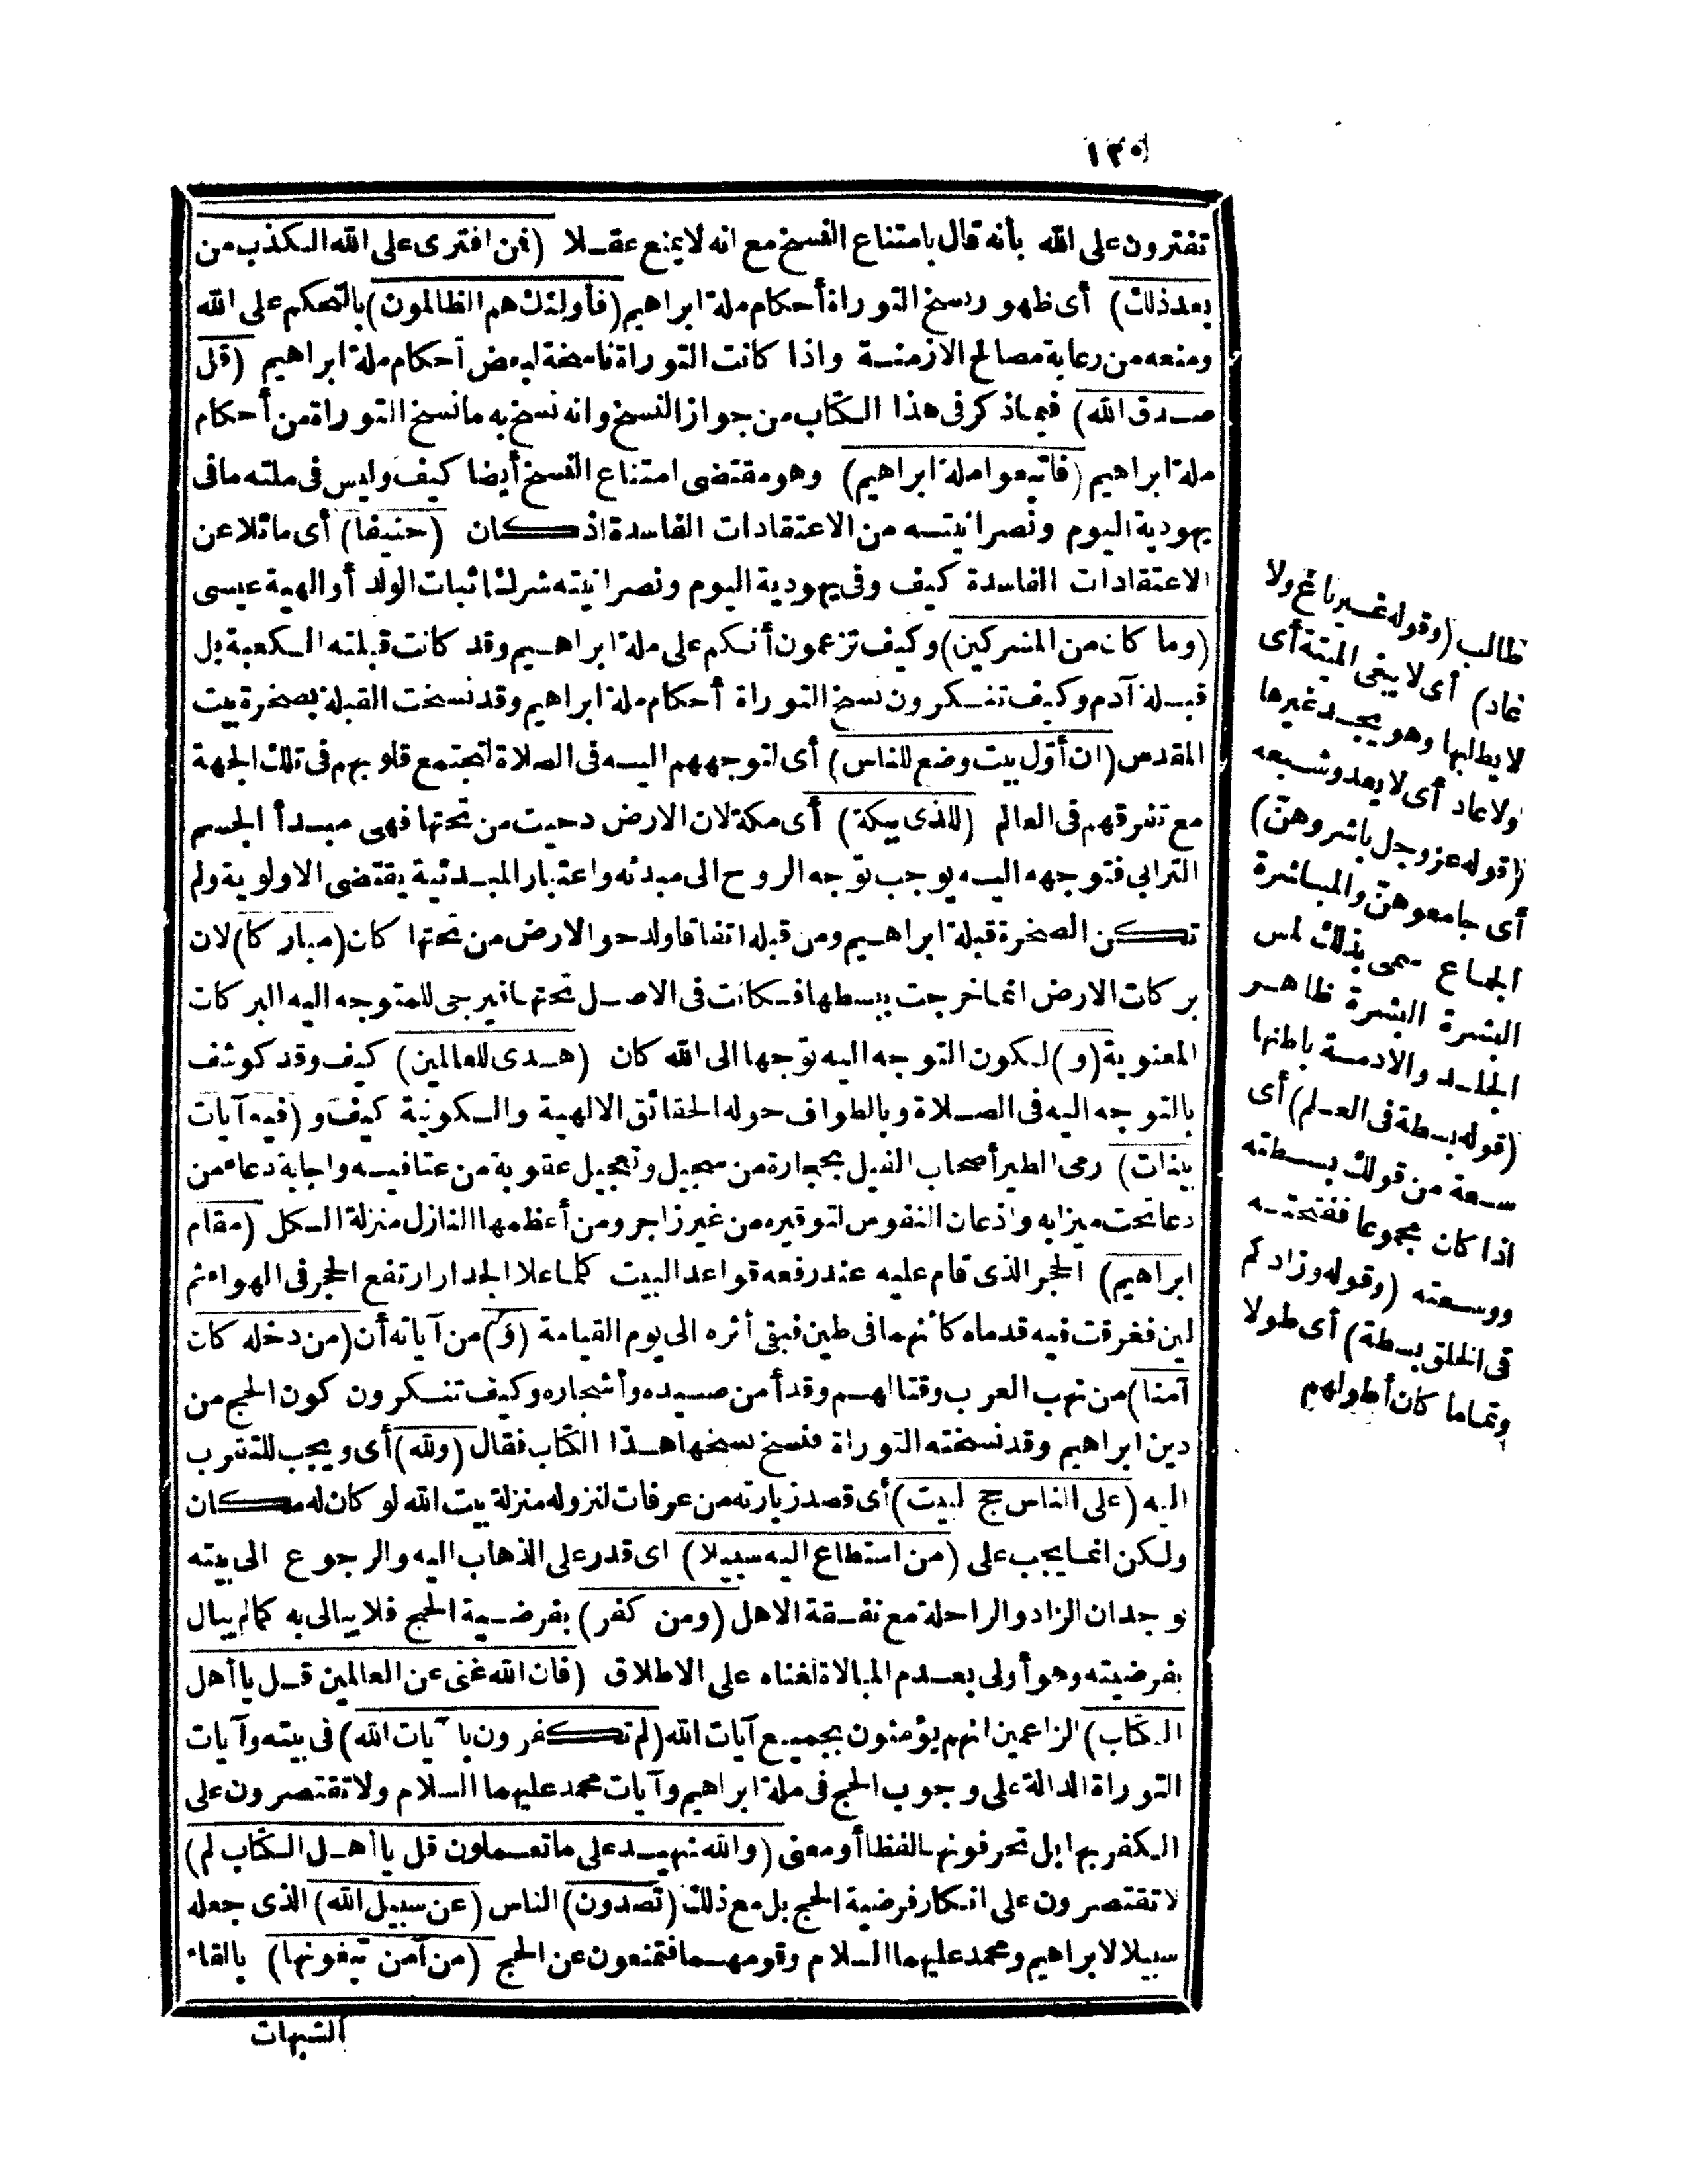 ١٢٠
تفترون على الله بأنه قال بامتناع النسخ مع انه لا يمنع عقلا (فمن افترى على الله الكذب من
بعد ذلك) أى ظهور نسخ التوراة أحكام ملة ابراهيم (فأولئك هم الظالمون) بالتحكم على الله
ومنعه من رعاية مصالح الازمنة واذا كانت التوراة ناسخة لبعض أحكام ملة ابراهيم (قل
صدق الله) فيما ذكر فى هذا الكتاب من جواز النسخ وانه نسخ به ما نسخ التوراة من أحكام
ملة ابراهيم (فاتبعوا ملة ابراهيم) وهو مقتضى امتناع النسخ أيضا كيف وليس فى ملته ما فى
يهودية اليوم ونصرانيته من الاعتقادات الفاسدة اذ كان (حنيفا) أى مائلا عن
الاعتقادات الفاسدة كيف وفى يهودية اليوم ونصرانيته شرك اثبات الولد أو الهية عيسى
(وما كان من المشركين) وكيف تزعمون أنكم على ملة ابراهيم وقد كانت قبلته الكعبة بل
قبلة آدم وكيف تنكرون نسخ التوراة أحكام ملة ابراهيم وقد نسخت القبلة بصخرة بيت
المقدس (ان أوّل بيت وضع للناس) أى لتوجههم اليه فى الصلاة لتجتمع قلوبهم فى تلك الجهة
مع تفرقهم فى العالم (للذى ببكة) أى مكة لان الارض دحيت من تحتها فهى مبدأ الجسم
الترابى فتوجهه اليه يوجب توجه الروح الى مبدئه واعتبار المبدئية يقتضى الاولوية ولم
تكن الصخرة قبلة ابراهيم ومن قبله اتفاقا ولدحو الارض من تحتها كان (مباركا) لان
بركات الارض انما خرجت ببسطها فكانت فى الاصل تحتها فيرجى للمتوجه اليه البركات
المعنوية (و) لكون التوجه اليه توجها الى الله كان (هدى للعالمين) كيف وقد كوشف
بالتوجه اليه فى الصلاة وبالطواف حوله الحقائق الالهية والكونية كيف و (فيه آيات
بينات) رمى الطير أصحاب الفيل بحجارة من سجيل وتعجيل عقوبة من عتا فيه واجابة دعاء من
دعا تحت ميزابه واذعان النفوس لتوقيره من غير زاجر ومن أعظمها النازل منزلة الكل (مقام
ابراهيم) الحجر الذى قام عليه عند رفعه قواعد البيت كلما علا الجدار ارتفع الحجر فى الهواء ثم
لين فغرقت فيه قدماه كأنهما فى طين فبقى أثره الى يوم القيامة (و) من آياته أن (من دخله كان
آمنا) من نهب العرب وقتالهم وقد أمن صيده وأشجاره وكيف تنكرون كون الحج من
دين ابراهيم وقد نسخته التوراة فنسخ نسخها هذا الكتاب فقال (ولله) أى ويجب للتقرب
اليه (على الناس حج لبيت) أى قصد زيارته من عرفات لنزوله منزلة بيت الله لو كان له مكان
ولكن انما يجب على (من استطاع اليه سبيلا) اى قدر على الذهاب اليه والرجوع الى بيته
بوجدان الزاد والراحلة مع نفقة الاهل (ومن كفر) بفرضية الحج فلا يبالى به كما لم يبال
بفرضيته وهو أولى بعدم المبالاة لغناه على الاطلاق (فان الله غنى عن العالمين قل يا أهل
الكتاب) الزاعمين انهم يؤمنون بجميع آيات الله (لم تكفرون بآيات الله) فى بيته وآيات
التوراة الدالة على وجوب الحج فى ملة ابراهيم وآيات محمد عليهما السلام ولا تقتصرون على
الكفر بها بل تحرفونها لفظا أو معنى (والله شهيد على ما تعملون قل يا أهل الكتاب لم)
لا تقتصرون على انكار فرضية الحج بل مع ذلك (تصدون) الناس (عن سبيل الله) الذى جعله
سبيلا لابراهيم ومحمد عليهما السلام وقومهما فتمنعون عن الحج (من آمن تبغونها) بالقاء
الشبهات
طالب (وقوله غير باغ ولا
عاد) أى لا يبغى الميتة أى
لا يطلبها وهو يجد غيرها
ولا عاد أى لا يعدو شبعه
(قوله عز وجل باشروهنّ)
أى جامعوهنّ والمباشرة
الجماع سمى بذلك لمس
البشرة البشرة ظاهر
الجلد والادمة باطنها
(قوله بسطة فى العلم) أى
سعة من قولك بسطته
اذا كان مجموعا ففتحته
ووسعته (وقوله وزادكم
فى الخلق بسطة) أى طولا
وتماما كان أطولهم